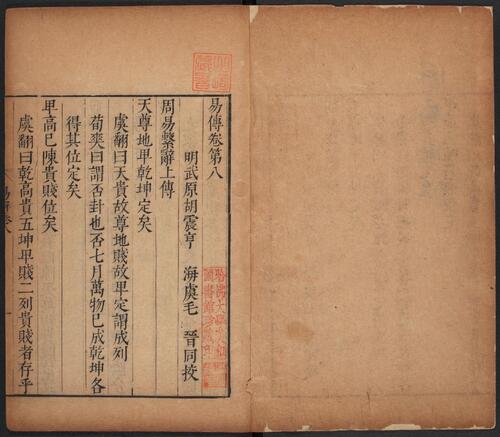 易傳卷第八
明武原胡震亨 海虞毛 晉同挍
周易繫辭上傳
天尊地卑乾坤定矣
虞翻曰天貴故尊地賤故卑定謂成列
荀爽曰謂否卦也否七月萬物已成乾坤各
得其位定矣
卑高已陳貴賤位矣
虞翻曰乾高貴五坤卑賤二列貴賤者存乎